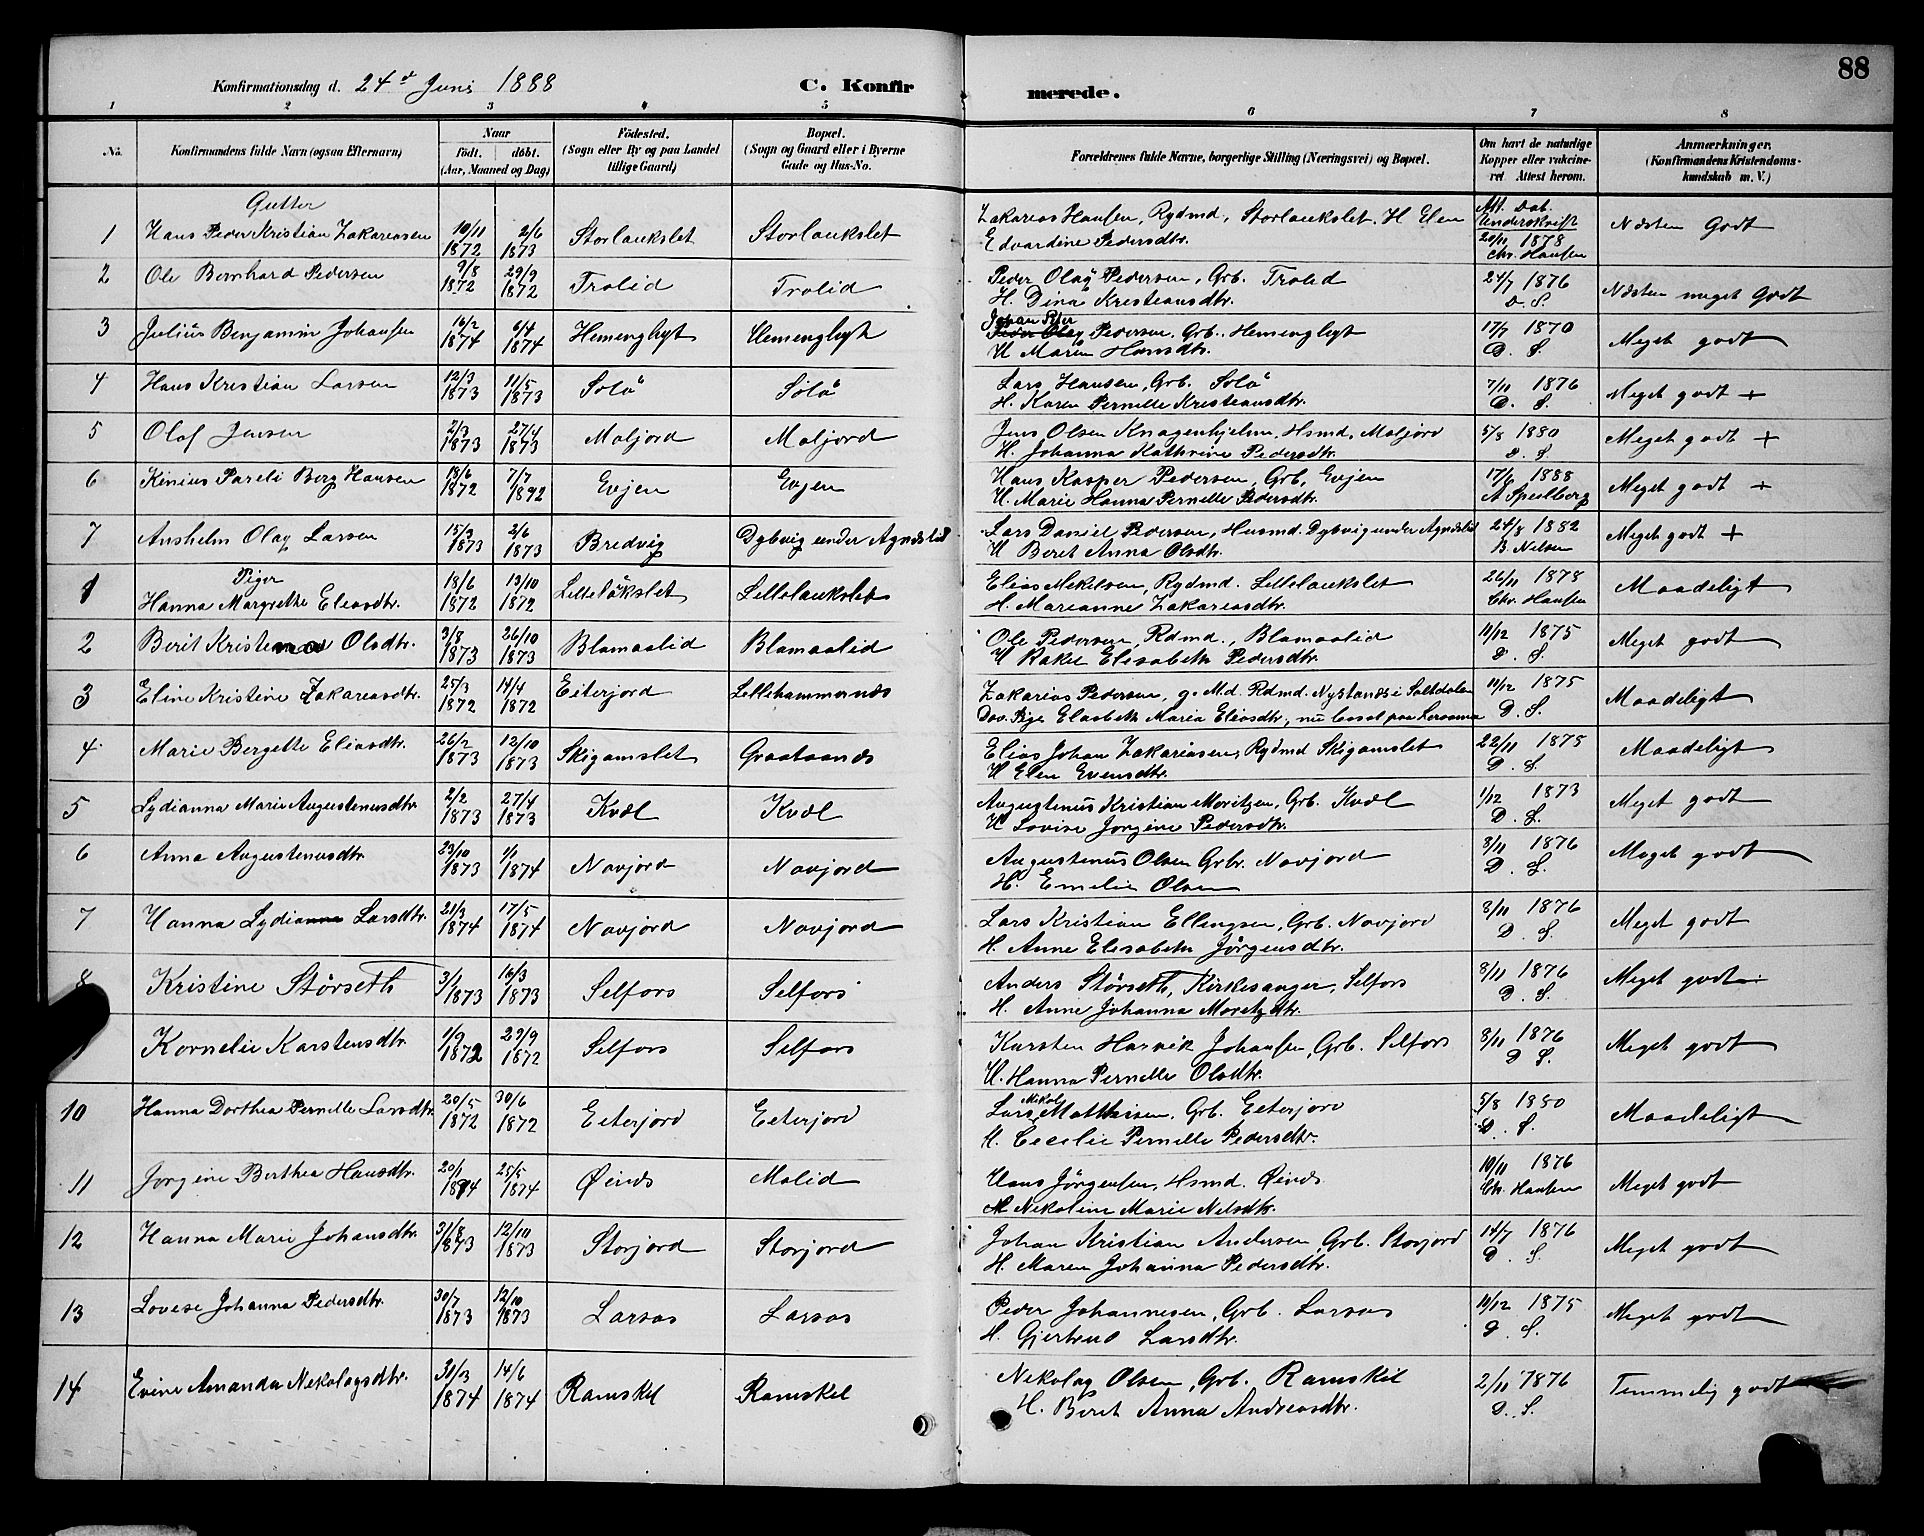 88
Konfirmationsdag d. 24de Juni 1888 C. Konfirmerede.
1 2 3 4 5 6 7 8
No. Konfirmandens fulde Navn (ogsaa Efternavn) Naar födt. döbt. (Aar, Maaned og Dag) Födested. (Sogn eller By og paa Landet tillige Gaard) Bopæl. (Sogn og Gaard eller i Byerne Gade og Hus-No.) Forældrenes fulde Navne, borgerlige Stilling (Næringsvei) og Bopæl. Om havt de naturlige Kopper eller vaccineret. Attest herom. Anmærkninger. (Konfirmandens Kristendomskundskab m. V.)
Gutter
1 Hans Peder Kristian Zakariasen 10/11 1872 2/6 1873 Storlaukslet Storlaukslet Zakarias Hansen, Rydmd, Storlaukslet. H Elen Edvardine Pedersdtr. Att. Dat. Underskrift 20/11 1878 Chr. Hansen Næsten Godt
2 Ole Bernhard Pedersen 9/8 1872 29/9 1872 Trolid Trolid Peder Olaÿ Pedersen, Grb. Trolid
H. Dina Kristiansdtr. 24/7 1876 D. S. Næsten meget Godt
3 Julius Benjamin Johansen 16/2 1874 6/4 1874 Hemenglyt Hemenglyt Johan Peter Peder Olay Pedersen, Grb. Hemenglygt
H Maren Hansdtr. 17/7 1870 D. S. Meget godt
4 Hans Kristian Larsen 12/3 1873 11/5 1873 Solö Solö Lars Hansen, Grb. Solö
H. Karen Pernille Kristiansdtr. 7/11 1876 D. S. Meget godt +
5 Olaf Jensen 2/3 1873 27/4 1873 Moljord Moljord Jens Olsen Knagenhjelm, Hsmd, Moljord
H. Johanna Kathrine Pedersdtr. 5/8 1880 D. S. Meget godt +
6 Kinius Pareli Berg Hansen 18/6 1872 7/7 1892 Evjen Evjen Hans Kasper Pedersen, Grb, Evjen
H. Marie Hanna Pernelle Pedersdtr. 17/6 1888 A Speilberg Meget godt +
7 Anshelm Olay Larsen 15/3 1873 2/6 1873 Bredvig Dybvig under Agnæslid Lars Daniel Pedersen, Husmd. Dybvig under Agnæslid
H Beret Anna Olsdtr. 24/8 1882 B. Nelsen Meget godt +
Piger
1 Hanna Margrethe Eliasdtr. 18/6 1872 13/10 1872 Lillelökslet Lillelaukslet Elias Mekelsen, Rydmd. Lillelaukslet
H. Marianne Zakariasdtr. 26/11 1878 Chr. Hansen Maadeligt
2 Berit Kristena Olsdtr. 3/8 1873 26/10 1873 Blamaalid Blamaalid Ole Pedersen, Rdmd., Blamaalid
H Rakel Elisabeth Pedersdtr. 11/12 1875 D. S. Meget godt
3 Eline Kristine Zakariasdtr. 25/3 1872 14/4 1872 Eiterjord Lillehammernæs Zakarias Pedersen, g. M.d. Rdmd. Nystanæs i Saltdalen
Dav. Pige Elasbeth Maria Eliasdtr, nu bosat paa 11/12 1875 D. S. Maadeligt
4 Marie Bergette Eliasdtr. 26/2 1873 12/10 1873 Skigamslet Graataanæs Elias Johan Zakariasen, Rydmd Skigamslet
H Elen Evensdtr. 22/11 1875 D. S. Maadeligt
5 Lydianna Marie Augustenusdtr 2/2 1873 27/4 1873 Kvæl Kvæl Augustenus Kristian Moritzen, Grb. Kvæl
H Lovise Jorgine Pedersdtr. 1/12 1873 D. S. Meget godt
6 Anna Augustenusdtr 23/10 1873 1/1 1874 Navjord Navjord Augustenus Olsen Grbr. Navjord
H. Emelie Olsen 8/11 1876 D. S. Meget godt
7 Hanna Lydianna Larsdtr. 21/3 1874 17/5 1874 Navjord Navjord Lars Kristian Ellingsen, Grb. Navjord
H. Anne Elisabeth Jörgensdtr. 8/11 1876 D. S. Meget godt
8 Kristine Störseth 3/1 1873 16/3 1873 Selfors Selfors Anders Störseth, Kirkesanger, Selfors
H. Anne Johanna Moretzdtr. 8/11 1876 D. S. Meget godt
Kornelie Karstensdtr 1/9 1872 29/9 1872 Selfors Selfors Karsten Harvik Johansen, Grb. Selfors
H. Hanna Pernelle Olsdtr. 8/11 1876 D S. Meget godt
10 Hanna Dorthea Pernelle Larsdtr 20/5 1872 30/6 1872 Eiterjord Eeterjord Lars Mikal Matthisen. Grb. Eeterjord
H. Cecelie Pernille Pedersdtr. 5/8 1880 D. S. Maadeligt
11 Jorgine Berthea Hansdtr. 20/1 1874 25/5 1874 Øinæs Molid Hans Jörgensen, Hsmd. Øinæs
H Nekoline Marie Nelsdtr. 10/11 1876 Chr. Hansen Meget godt
12 Hanna Marie Johansdtr 31/8 1873 12/10 1873 Storjord Storjord Johan Kristian Andersen, Grb. Storjord
H. Maren Johanna Pedersdtr. 14/7 1876 D. S. Meget godt
13 Lovise Johanna Pedersdtr. 30/7 1873 12/10 1873 Larsos Larsos Peder Johannesen, Grb. Larsos
H. Gjertrud Larsdtr. 11/12 1875 D. S. Meget godt
14 Evine Amanda Nekolaysdtr. 31/3 1874 14/6 1874 Ramskel Ramskel Nekolay Olsen, Grb. Ramskel
H. Beret Anna Andreasdtr. 2/11 1876 D. S. Temmelig godt